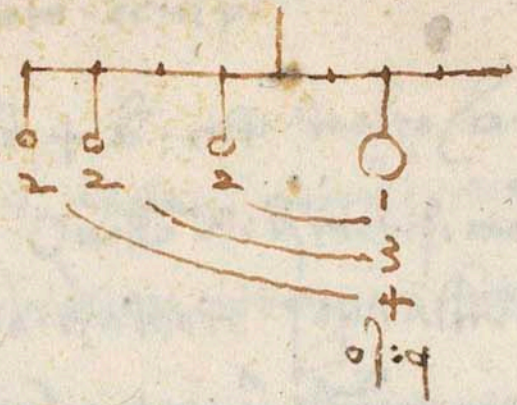 2 2 2
1
3
4